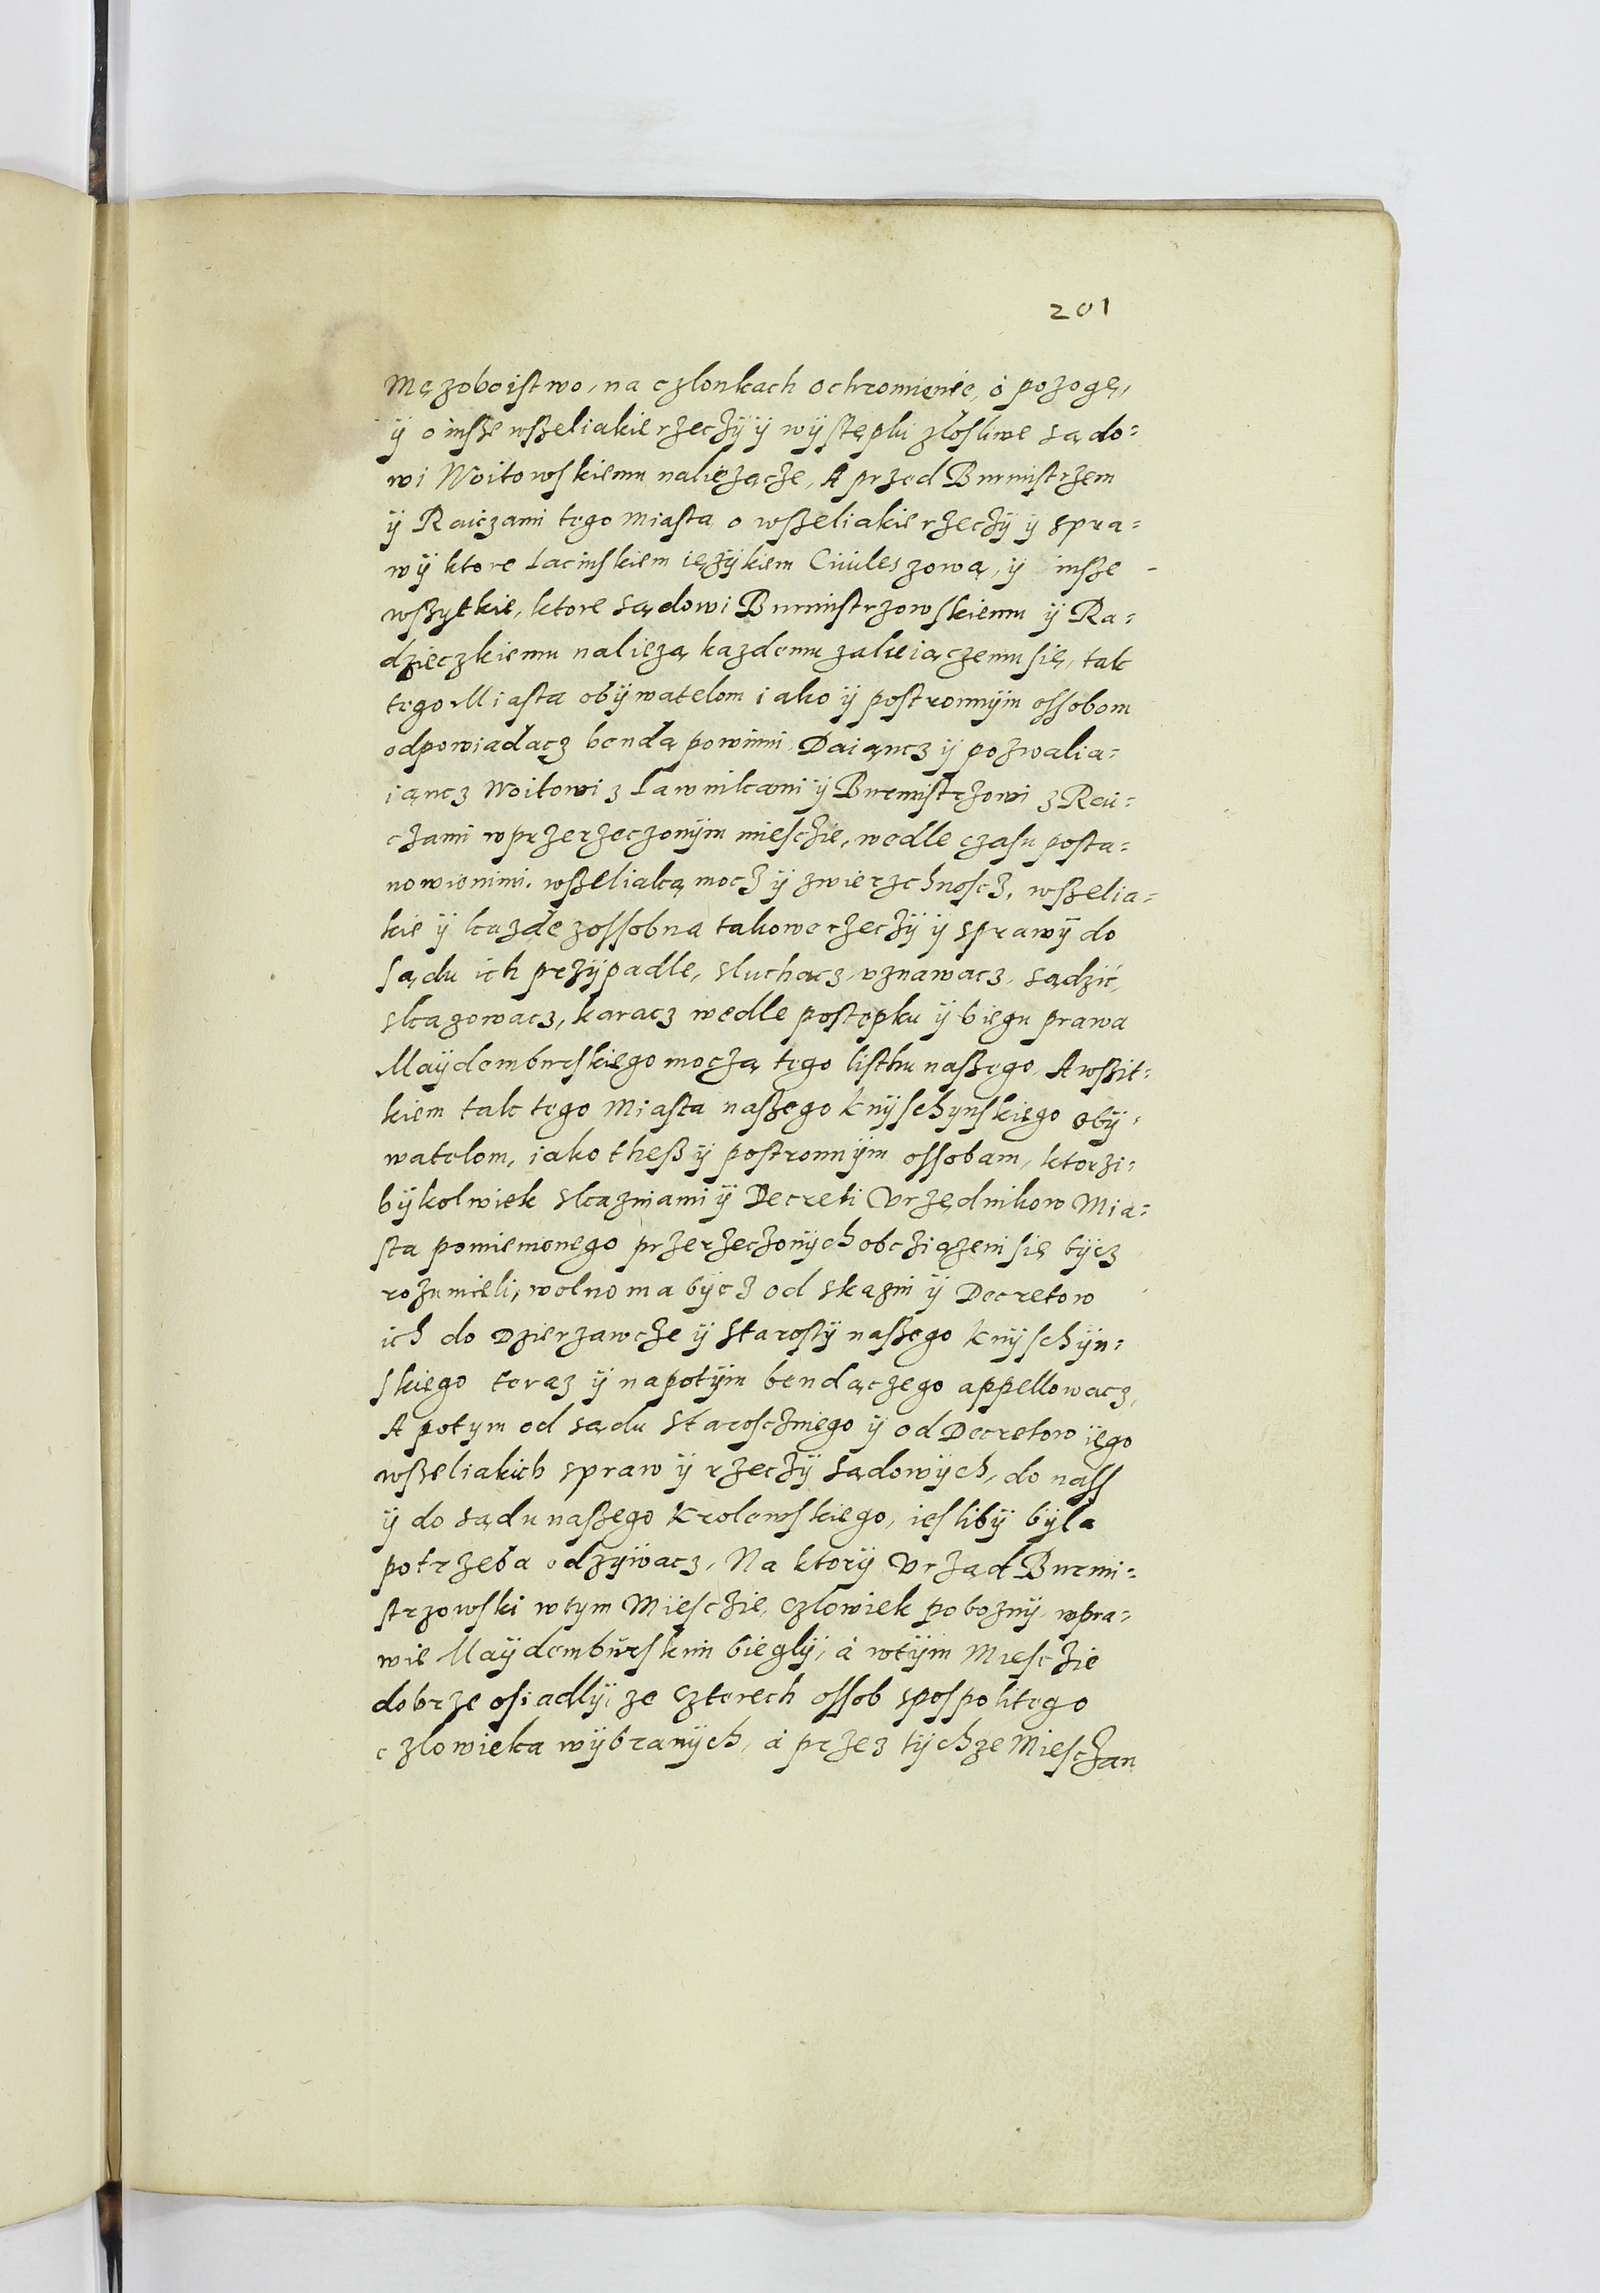 201
Męzoboistwo, na członkach ochromienie, ó pozogę,
ÿ o insze wszeliakie rzeczÿ ÿ wÿstępki złosliwe sądo=
wi Woitowskiemu naliezącze, A przed Burmistrzem
ÿ Raiczami tego miasta o wszeliakie rzeczÿ ÿ spra=
wÿ ktore Łacinskiem ięzÿkiem Ciuiles zową, ÿ insze
wszytkie, ktore sądowi Burmistrzowskiemu ÿ Ra=
dzieczkiemu nalieżą kazdemu zaluiączemu się, tak
tego Miasta obÿwatelom iako ÿ postronnÿm ossobom
odpowiadacz bendą powinni Daiąncz ÿ pozwalia=
iąncz Woitowi z Ławnikami ÿ Burmistrzowi z Rai=
czami wprzerzeczonÿm miesczie, wedle czasu posta=
nowieniwi. wszeliaką mocz ÿ zwierzchnoscz, wszelia=
kie ÿ kazde zossobna takowe rzeczÿ ÿ sprawÿ do
sądu ich przÿpadłe, słuchacz, vznawacz, sądzić,
skazowacz, karacz wedle postępku ÿ biegu prawa
Maÿdemburskiego moczą tego listhu naszego, A wszit=
kiem tak tego Miasta naszego knÿschynskiego obÿ=
watelom, iako thesz ÿ postronnÿm ossobam, ktorzi=
bÿkolwiek skazniami ÿ Decreti Vrzędnikow Mia=
sta pomienionego przerzeczonÿch obcziązeni się bÿcz
rozumieli, wolno ma bÿcz od skazni ÿ Decretow
ich do Dzierzawcze ÿ Starostÿ naszego knÿschÿn=
skiego teraz ÿ napotÿm bendączego appellowacz,
A potym od sądu Starosczinego ÿ od Decretow iego
wszeliakich spraw ÿ rzeczÿ sądowÿch, do nass
ÿ do sądu naszego krolewskiego, iesliby bÿla
potrzeba odzÿwacz, Na ktorÿ Vrząd Burmi=
strzowski wtym Miesczie, człowiek pobozny, wpra=
wie Maÿdemburskim biegłÿ, á wtÿm Miesczie
dobrze osiadłÿ, ze czterech ossob spospolitego
czlowieka wÿbranÿch, á przez tÿchze Miesczan